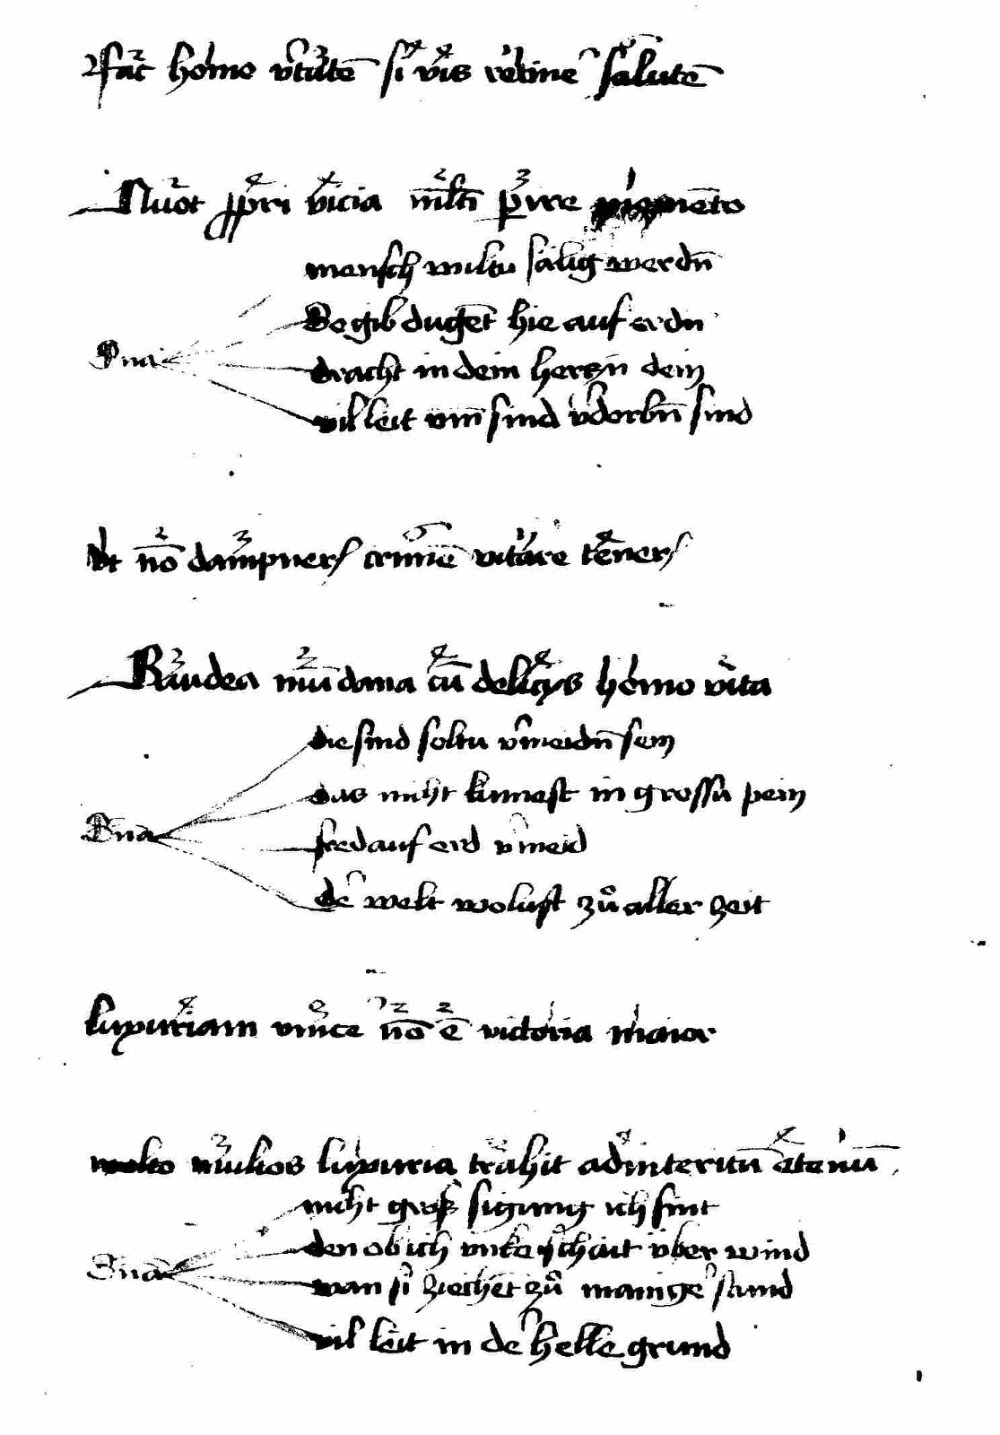 Fac homo v̄tutē si vis retine salutē
Nuot ꝓpri vicia ml̄ti p̱ire
mensch wiltu sälig werdn̄
Be gib dugēt hie auf erdn
dracht in dein herczn̄ dein
vil leit vm̄ sind v̓dorbn̄ sind
Ut nō dampners crimīe vitare teners
Gaudea mūdana cū delicijs homo vita
die sind soltu v̓meidn̄ sein
das nicht kumest in grossn̄ pein
fred auf erd v̓meid
de᷑ welt wolust zuͦ aller zeit
luxuriam vince nō ē victoria maior
multos luxuria trahit ad interitū etenū
nicht gross sigung ich fint
den ob ich vnkeuschait vber wind
wan si ziehēt zuͦ mainge᷑ stund
vil leit in de᷑ helle grund